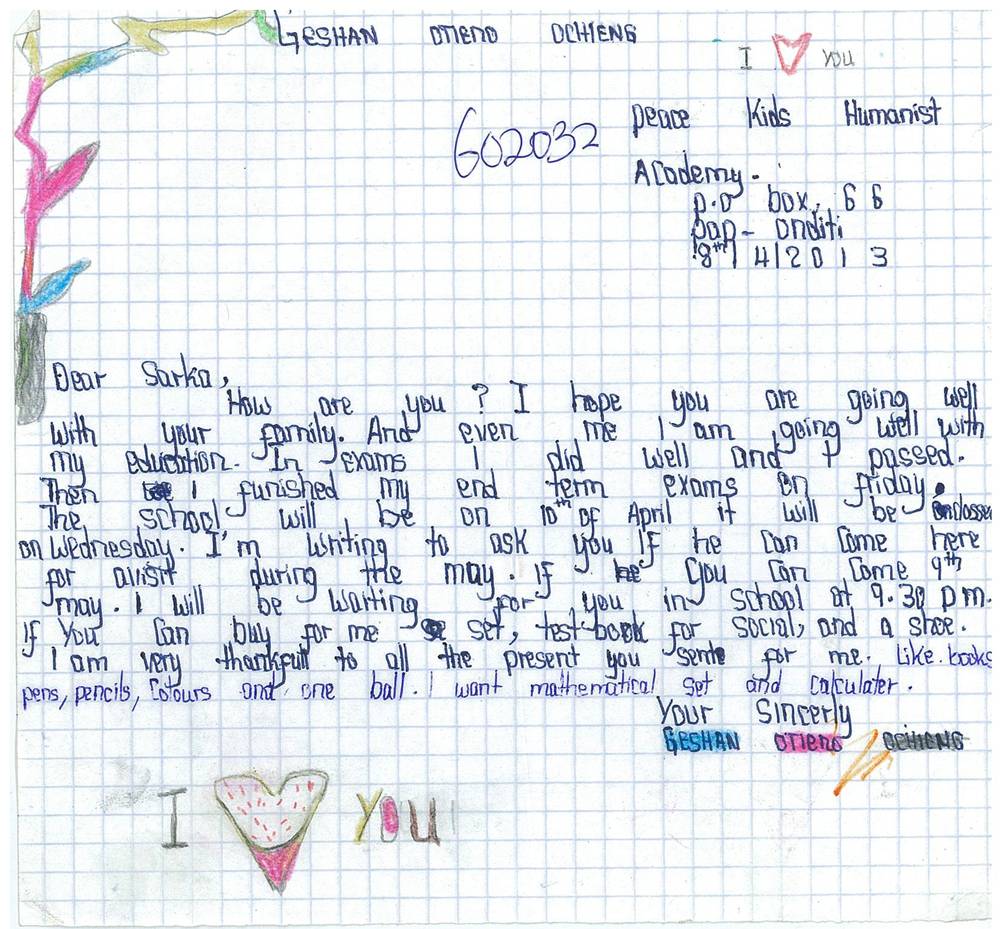 GESHAN OTIENO OCHIENG
I YOU
602032
peace Kids Humanist
Academy.
p.o box, 66
pap- onditi
8th/4/2013
Dear Sarka,
How are you ? I hope you are going well
with your family. And even me I am going well with
my education. In exams I did well and I passed.
Then I funished my end term exams on friday.
The school will be on 10th of April it will be
on Wednesday. I'm writing to ask you If he can come here
for avisit during the may. If you can come 9th
may. I will be waiting for you in school at 9.30 pm.
If you can buy for me set, test book for social, and a shoe.
I am very thankfull to all the present you sente for me. Like. books
pens, pencils, colours and one ball. I want mathematical set and calculater.
Your Sincerly
GESHAN OTIENO OCHIENG
I YOU